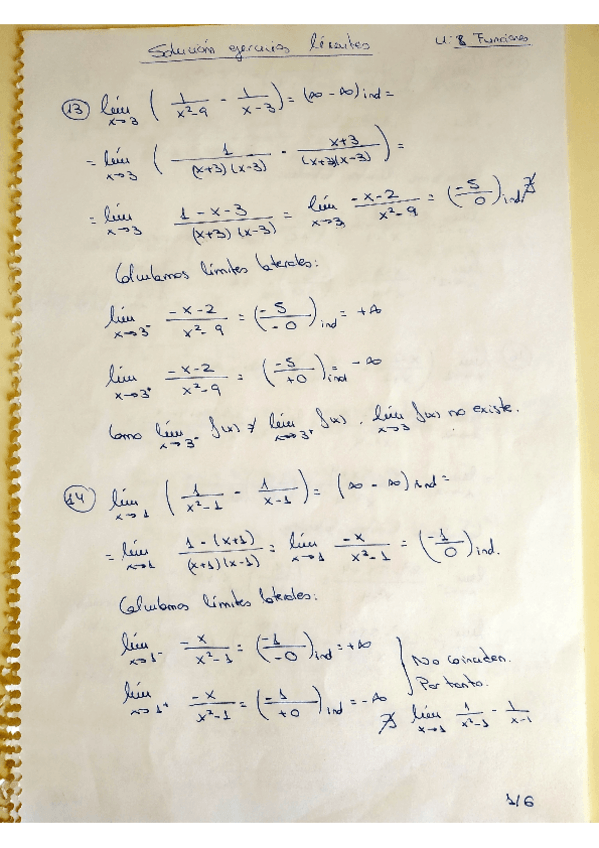 Solución ejercicios límites U. 8 Funciones
13 lím x→3 ( 1/(x²-9) - 1/(x-3) ) = (∞ - ∞) ind =
= lím x→3 ( 1/((x+3)(x-3)) - (x+3)/((x+3)(x-3)) ) =
= lím x→3 (1-x-3)/((x+3)(x-3)) = lím x→3 (-x-2)/(x²-9) = (-5/0) ind ∄
Calculamos límites laterales:
lím x→3⁻ (-x-2)/(x²-9) = (-5/-0) ind = +∞
lím x→3⁺ (-x-2)/(x²-9) = (-5/+0) ind = -∞
Como lím x→3⁻ f(x) ≠ lím x→3⁺ f(x). lím x→3 f(x) no existe.
14 lím x→1 ( 1/(x²-1) - 1/(x-1) ) = (∞ - ∞) ind =
= lím x→1 (1-(x+1))/((x+1)(x-1)) = lím x→1 -x/(x²-1) = (-1/0) ind.
Calculamos límites laterales:
lím x→1⁻ -x/(x²-1) = (-1/-0) ind = +∞
No coinciden.
Por tanto.
lím x→1⁺ -x/(x²-1) = (-1/+0) ind = -∞
∄ lím x→1 1/(x²-1) - 1/(x-1)
1/6